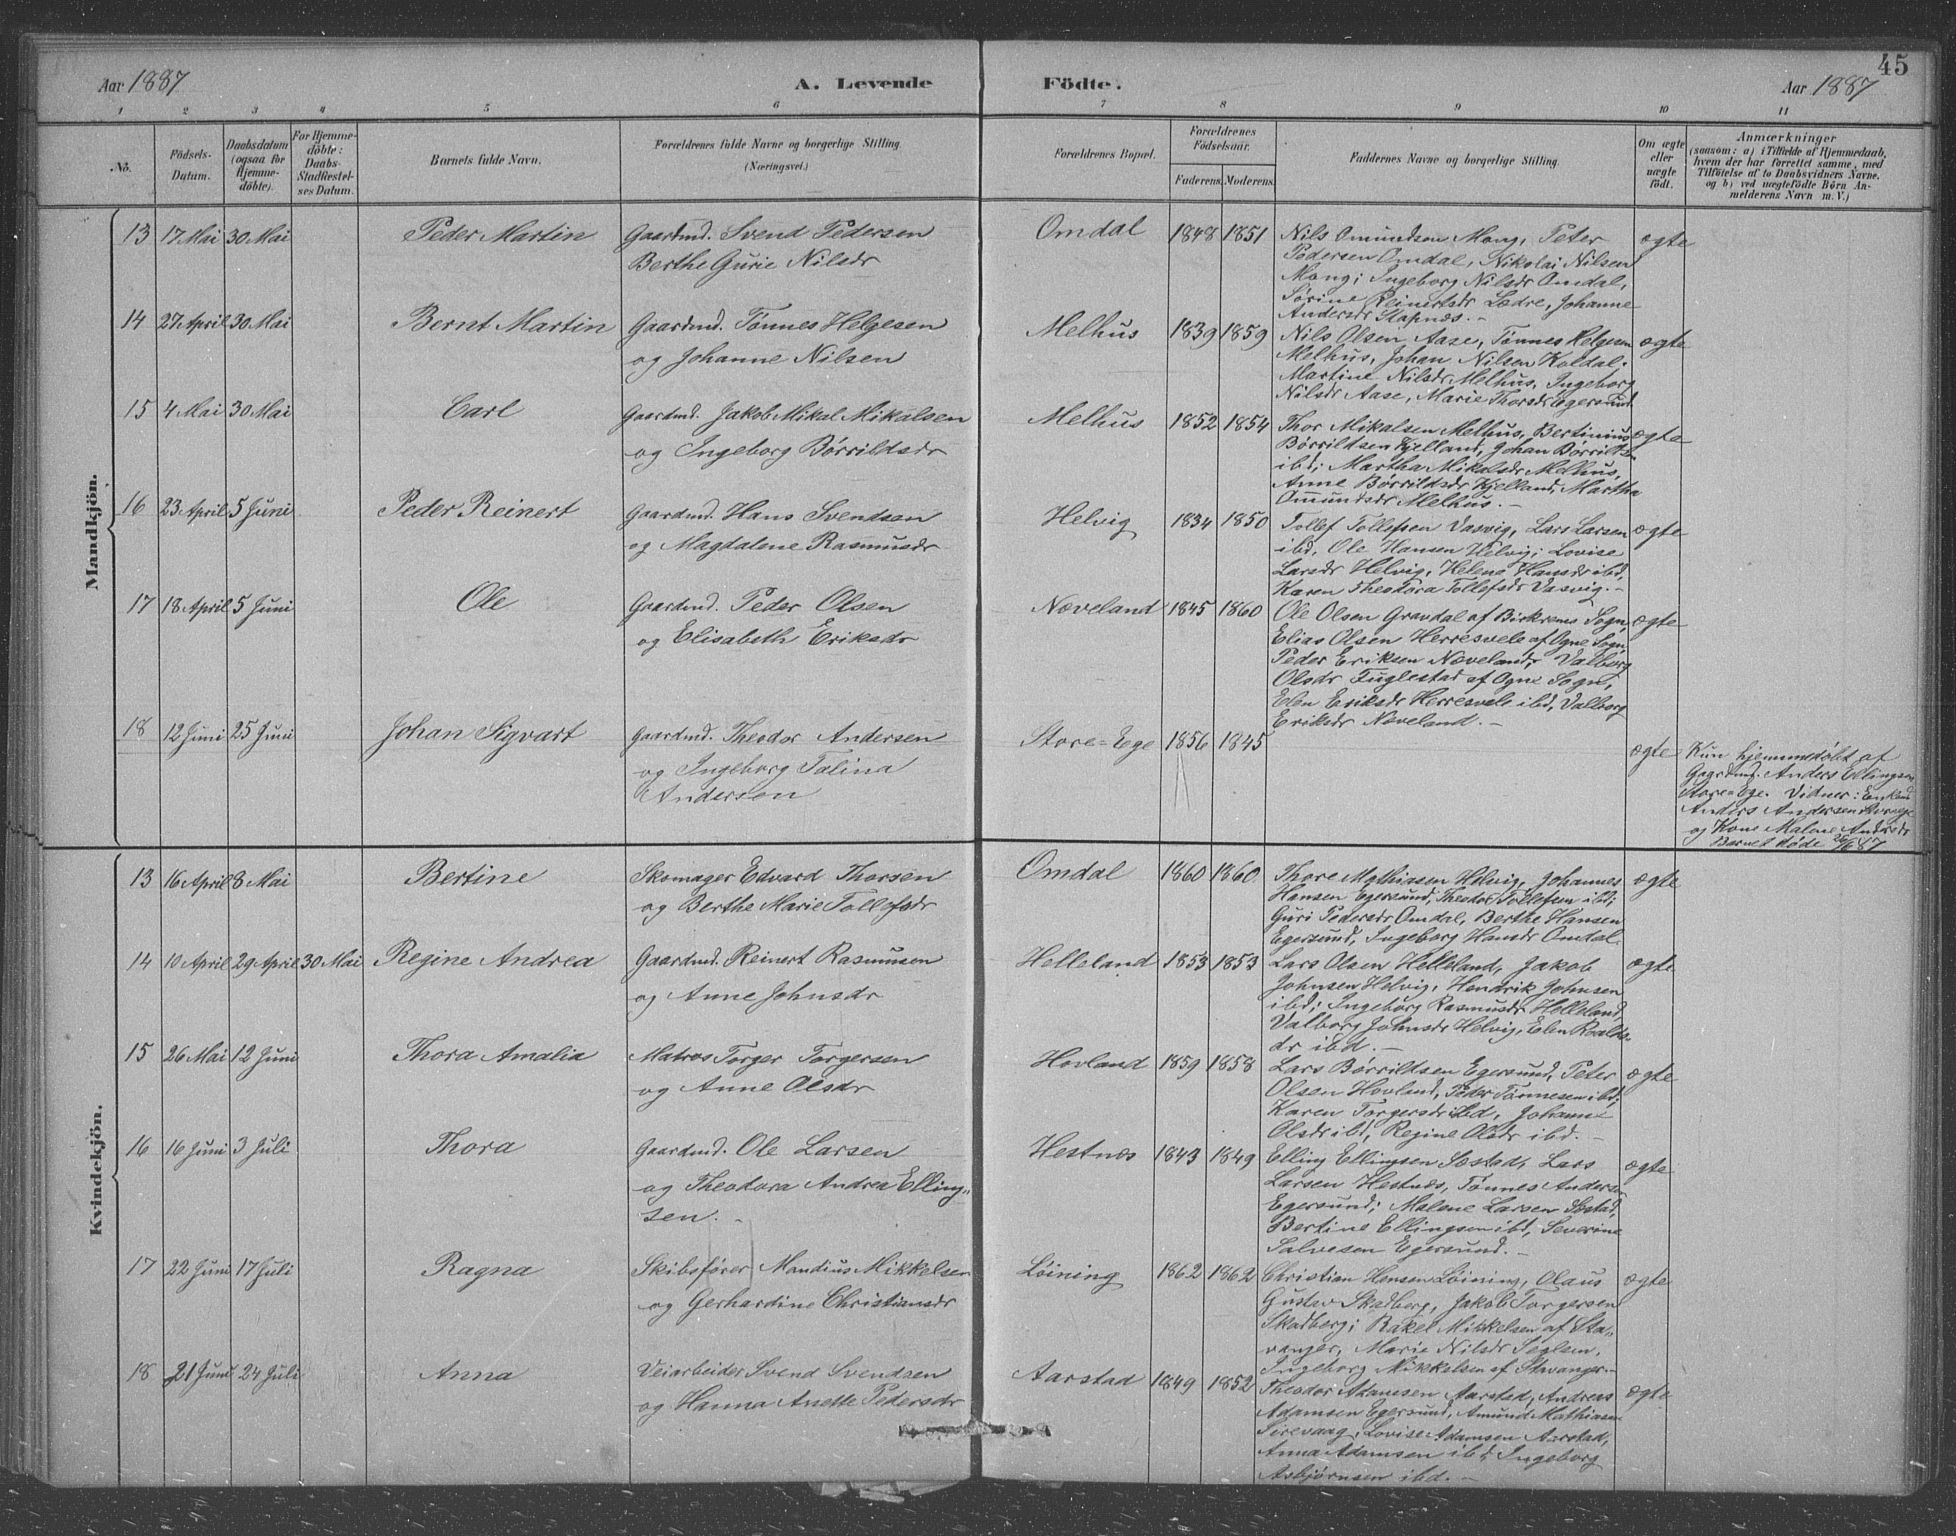 45
Aar 1887
A. Levende
Födte.
Aar 1887
1 2 3 4 5 6 7 8 9 10 11
No.
Födsels-Datum.
Daabsdatum (ogsaa for Hjemme-döbte).
For Hjemme-döbte: Daabs-Stadfæstel-ses Datum.
Barnets fulde Navn.
Forældrenes fulde Navne og borgerlige Stilling. (Næringsvei.)
Forældrenes Bopæl.
Forældrenes Födselsaar.
Faderens. Moderens.
Faddernes Navne og borgerlige Stilling.
Om ægte eller uægte födt.
Anmærkninger
(saasom: a) i Tilfælde af Hjemmedaab,
hvem der har forrettet samme, med
Tilföielse af to Daabsvidners Navne,
og b) ved uægtefödte Börn An-
melderens Navn m. V.)
Mandkjön.
13 17 Mai 30 Mai Peder Martin Gaardmd. Svend Pedersen Omdal 1848 1851 Nils Omundsen Mong, Peter ægte
Berthe Gurie Nilsdr Pedersen Omdal, Nikolai Nilsen
Mong; Ingeborg Nilsdr Omdal,
Sørine Reinertsdr Lædre, Johanne
Andersdr Stapnæs. –
14 27 April 30 Mai Bernt Martin Gaardmd. Tønnes Helgesen Melhus 1839 1859 Nils Olsen Aase, Tønnes Helgesen ægte
og Johanne Nilsen Melhus, Johan Nilsen Koldal;
Martine Nilsdr Melhus, Ingeborg
Nilsdr Aase, Marie Thorsdr Egersund
15 4 Mai 30 Mai Carl Gaardmd. Jakob Mikal Mikalsen Melhus 1852 1854 Thor Mikalsen Melhus, Bertinius ægte
og Ingeborg Børrildsdr Børrildsen Kjelland, Johan Børrilds.
ibd; Martha Mikalsdr Melhus,
Anne Børrildsdr Kjelland, Martha
Omundsdr Melhus. –
16 23 April 5 Juni Peder Reinert Gaardmd. Hans Svendsen Helvig 1834 1850 Tollef Tollefsen Vasvig, Lars Larsen ægte
og Magdalene Rasmusdr ibd, Ole Hansen Helvig; Lovise
Larsdr Helvig, Helene Hansdr ibd,
Karen Theodora Tollefsdr Vasvig. –
17 18 April 5 Juni Ole Gaardmd. Peder Olsen Næveland 1845 1860 Ole Olsen Gravdal af Birkrems Sogn, ægte
og Elisabeth Eriksdr Elias Olsen Herresvele af Ogne Sogn,
Peder Eriksen Næveland; Valborg
Olsdr Fuglestad af Ogne Sogn,
Elen Eriksdr Herresvele ibd, Valborg
Eriksdr Næveland. –
18 12 Juni 25 Juni Johan Sigvart Gaardmd. Theodor Andersen Store=Ege 1856 1845 ægte Kun hjemmedøbt af
og Ingeborg Talina Gaardmd. Anders Ellingsen
Andersen Store=Ege. Vidner: Enkemd
Anders Andersen Storeege
og Kone Malene Andersdr
Barnet døde 26/6 87
Kvindekjön.
13 16 April 8 Mai Bertine Skomager Edvard Thorsen Omdal 1860 1860 Thore Mathiasen Helvig, Johannes ægte
og Berthe Marie Tollefsdr Hansen Egersund, Theodor Tollefsen ibd;
Guri Pedersdr Omdal, Berthe Hansen
Egersund, Ingeborg Hansdr Omdal.
14 10 April 29 April 30 Mai Regine Andrea Gaardmd. Reinert Rasmusen Helleland 1853 1853 Lars Olsen Helleland, Jakob ægte
og Anne Johnsdr Johnsen Helvig, Hendrik Johnsen
ibd; Ingeborg Rasmusdr Helleland,
Valborg Johnsdr Helvig, Elen Roalds-
dr ibd. –
15 26 Mai 12 Juni Thora Amalia Matros Torger Torgersen Hovland 1859 1858 Lars Børrildsen Egersund, Peter ægte
og Anne Olsdr Olsen Hovland, Peder Tønnesen ibd;
Karen Torgersdr ibd, Johanne
Olsdr ibd, Regine Olsdr ibd. –
16 16 Juni 3 Juli Thora Gaardmd. Ole Larsen Hestnæs 1843 1849 Elling Ellingsen Sæstad, Lars ægte
og Theodora Andrea Elling- Larsen Hestnæs, Tønnes Andersen
sen. – Egersund; Malene Larsen Sæstad,
Bertine Ellingsen ibd, Severine
Salvesen Egersund. –
17 22 Juni 17 Juli Ragna Skibsfører Mandius Mikkelsen Løining 1862 1862 Christian Hansen Løining, Olaus ægte
og Gerhardine Christiansdr Gustav Skadberg, Jakob Torgersen
Skadberg; Rakel Mikkelsen af Sta-
vanger, Marie Nilsdr Seglem,
Ingeborg Mikkelsen af Stavanger. –
18 21 Juni 24 Juli Anna Veiarbeider Svend Svendsen Aarstad 1849 1852 Theodor Adamsen Aarstad, Andreas ægte
og Hanna Anette Pedersdr Adamsen Egersund, Amund Mathiasen
Sirevaag; Lovise Adamsen Aarstad,
Anna Adamsen ibd, Ingeborg
Asbjørnsen ibd. –